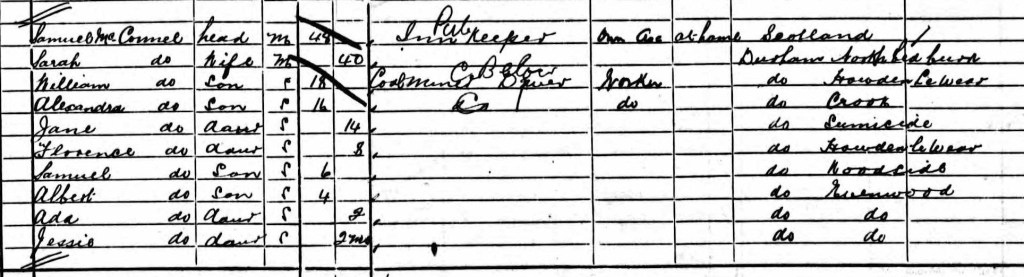 Samuel Mc Connel head M 48 Inn Keeper Pub Own Acc at home Scotland
Sarah do Wife M 40 Durham North Bedburn
William do Son S 18 Coal Miner Hewer Below Worker do Howden Le Wear
Alexandra do Son S 16 do do do Crook
Jane do daur S 14 do
Florence do daur S 8 do Howden Le Wear
Samuel do Son S 6 do Woodside
Albert do Son S 4 do Evenwood
Ada do daur S 2 do do
Jessie do daur S 2 mo do do